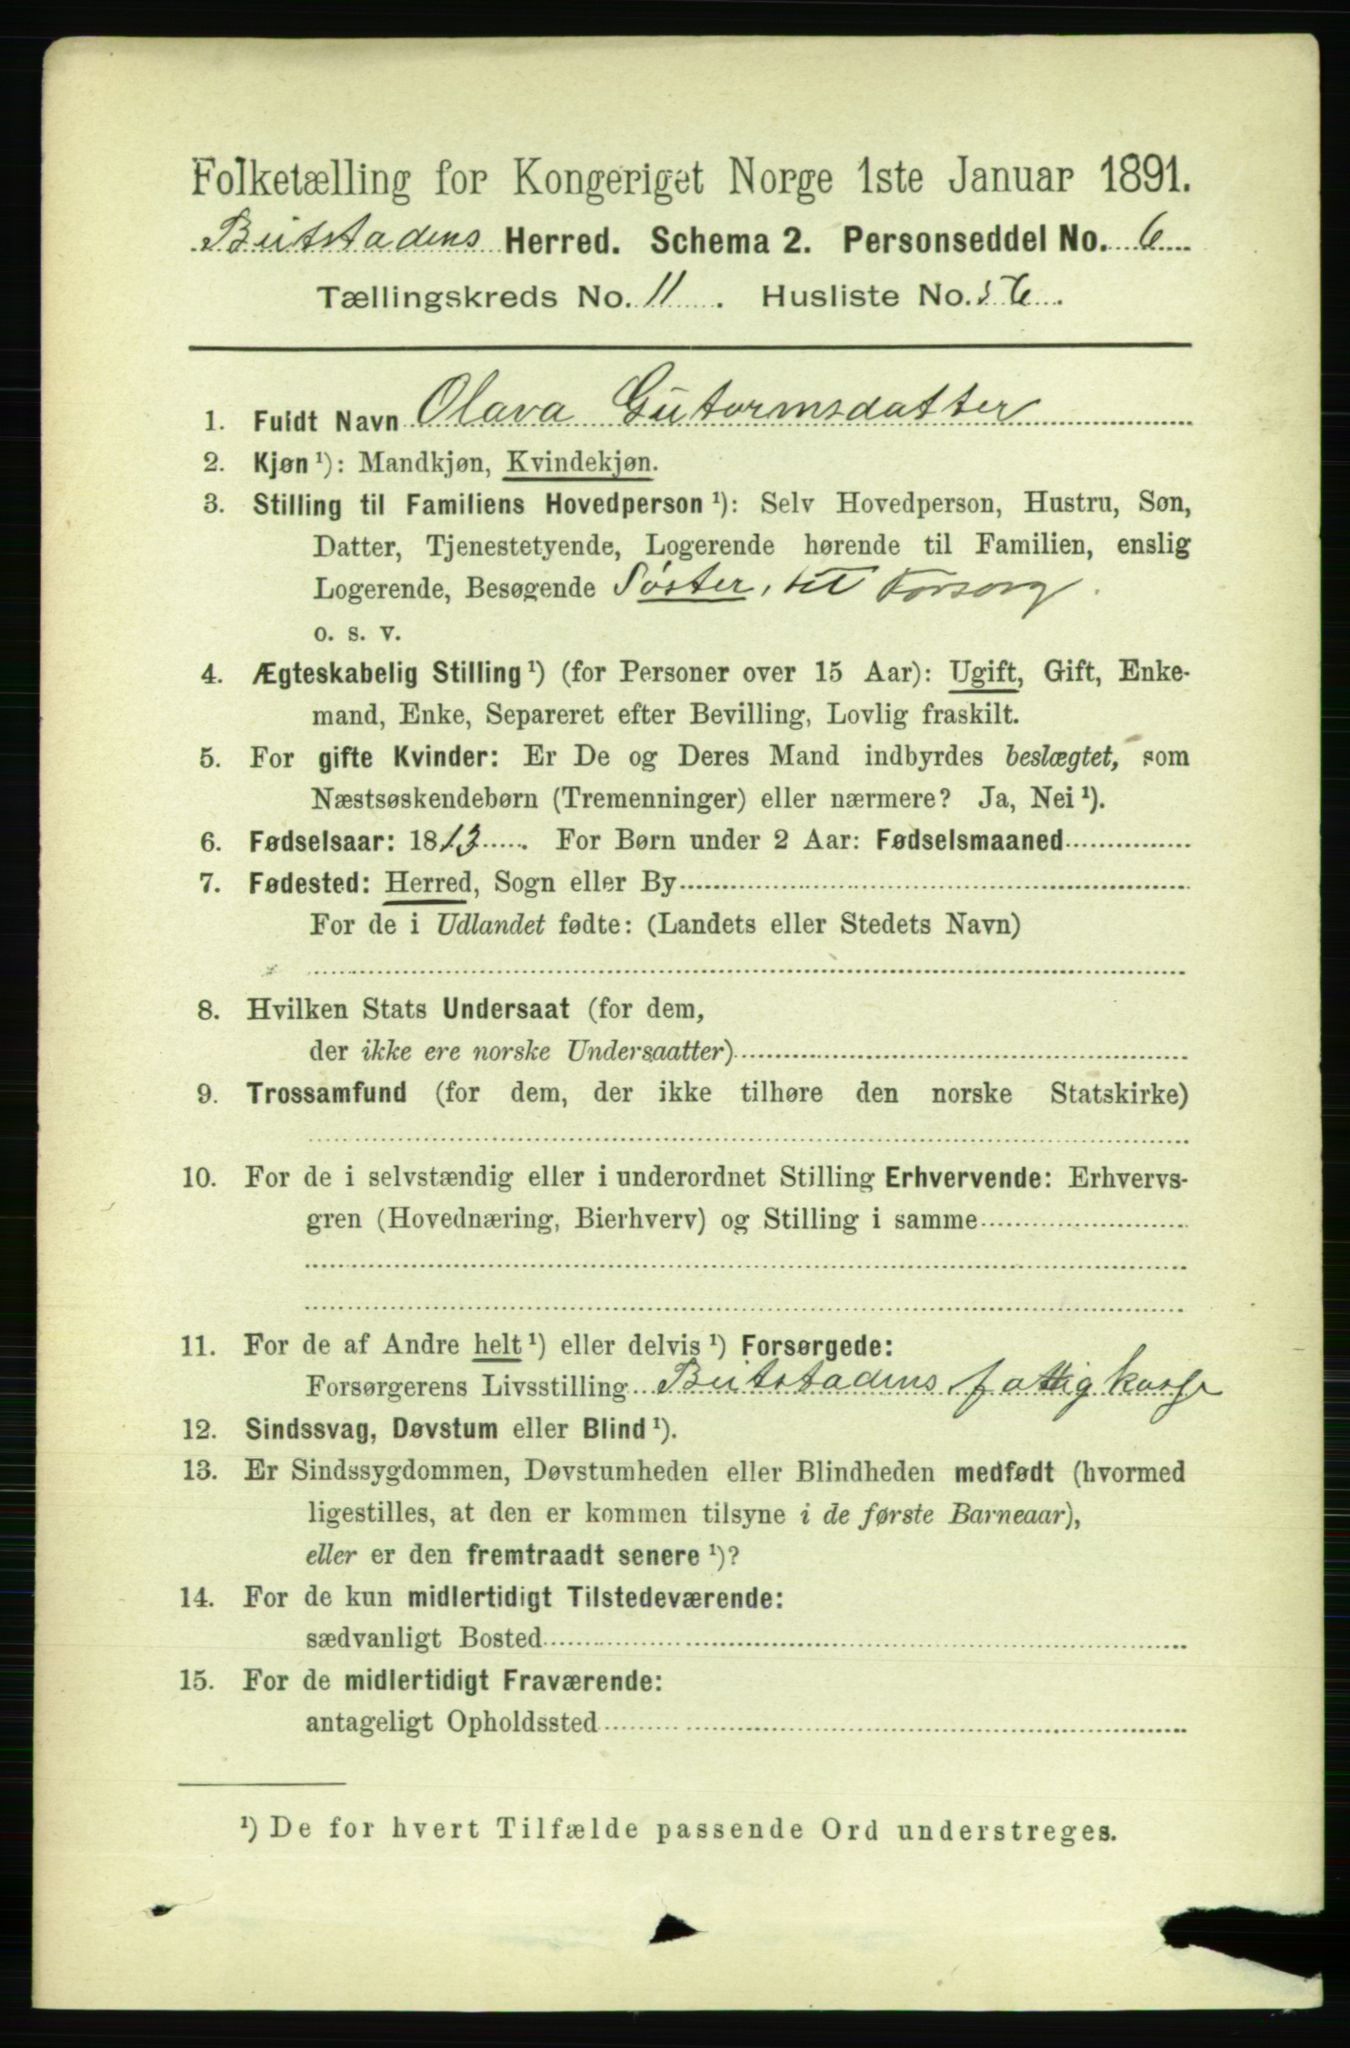 Folketælling for Kongeriget Norge 1ste Januar 1891.
Beitstadens Herred. Schema 2. Personseddel No. 6
Tællingskreds No. 11. Husliste No. 56.
1. Fuldt Navn Olava Gutormsdatter
2. Kjøn ¹): Mandkjøn, Kvindekjøn.
3. Stilling til Familiens Hovedperson ¹): Selv Hovedperson, Hustru, Søn,
Datter, Tjenestetyende, Logerende hørende til Familien, enslig
Logerende, Besøgende Søster, til Forsørg.
o. s. v.
4. Ægteskabelig Stilling ¹) (for Personer over 15 Aar): Ugift, Gift, Enke-
mand, Enke, Separeret efter Bevilling, Lovlig fraskilt.
5. For gifte Kvinder: Er De og Deres Mand indbyrdes beslægtet, som
Næstsøskendebørn (Tremenninger) eller nærmere? Ja, Nei ¹).
6. Fødselsaar: 1813. For Børn under 2 Aar: Fødselsmaaned
7. Fødested: Herred, Sogn eller By
For de i Udlandet fødte: (Landets eller Stedets Navn)
8. Hvilken Stats Undersaat (for dem,
der ikke ere norske Undersaatter)
9. Trossamfund (for dem, der ikke tilhøre den norske Statskirke)
10. For de i selvstændig eller i underordnet Stilling Erhvervende: Erhvervs-
gren (Hovednæring, Bierhverv) og Stilling i samme
11. For de af Andre helt ¹) eller delvis ¹) Forsørgede:
Forsørgerens Livsstilling Beitstadens fattigkasse
12. Sindssvag, Døvstum eller Blind ¹).
13. Er Sindssygdommen, Døvstumheden eller Blindheden medfødt (hvormed
ligestilles, at den er kommen tilsyne i de første Barneaar),
eller er den fremtraadt senere ¹)?
14. For de kun midlertidigt Tilstedeværende:
sædvanligt Bosted
15. For de midlertidigt Fraværende:
antageligt Opholdssted
¹) De for hvert Tilfælde passende Ord understreges.